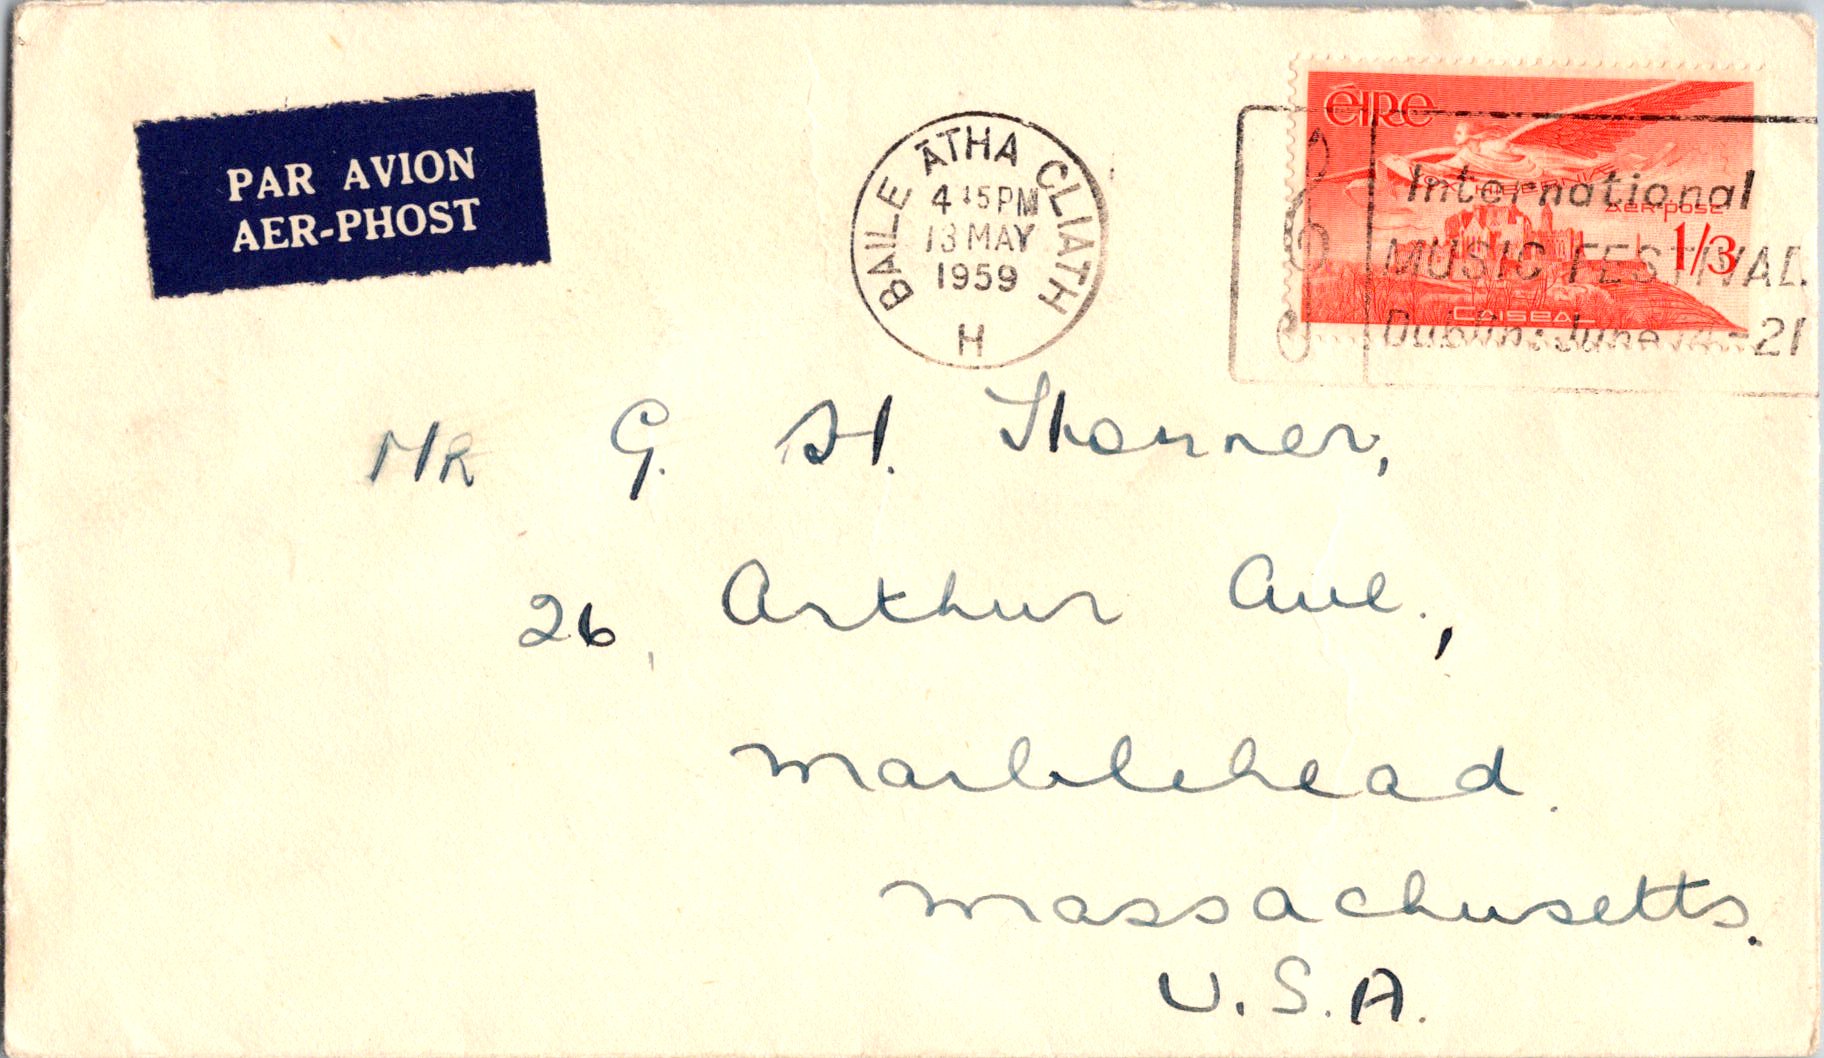 PAR AVION
AER-PHOST
BAILE ÁTHA CLIATH
4 15 PM
13 MAY
1959
H
ÉIRE
VOX HIBERNIÆ
AERPOST
1/3
CAISEAL
International
MUSIC FESTIVAL.
Dublin: June -21
Mr G. H.
26, Arthur Ave.,
Marblehead.
Massachusetts.
U.S.A.